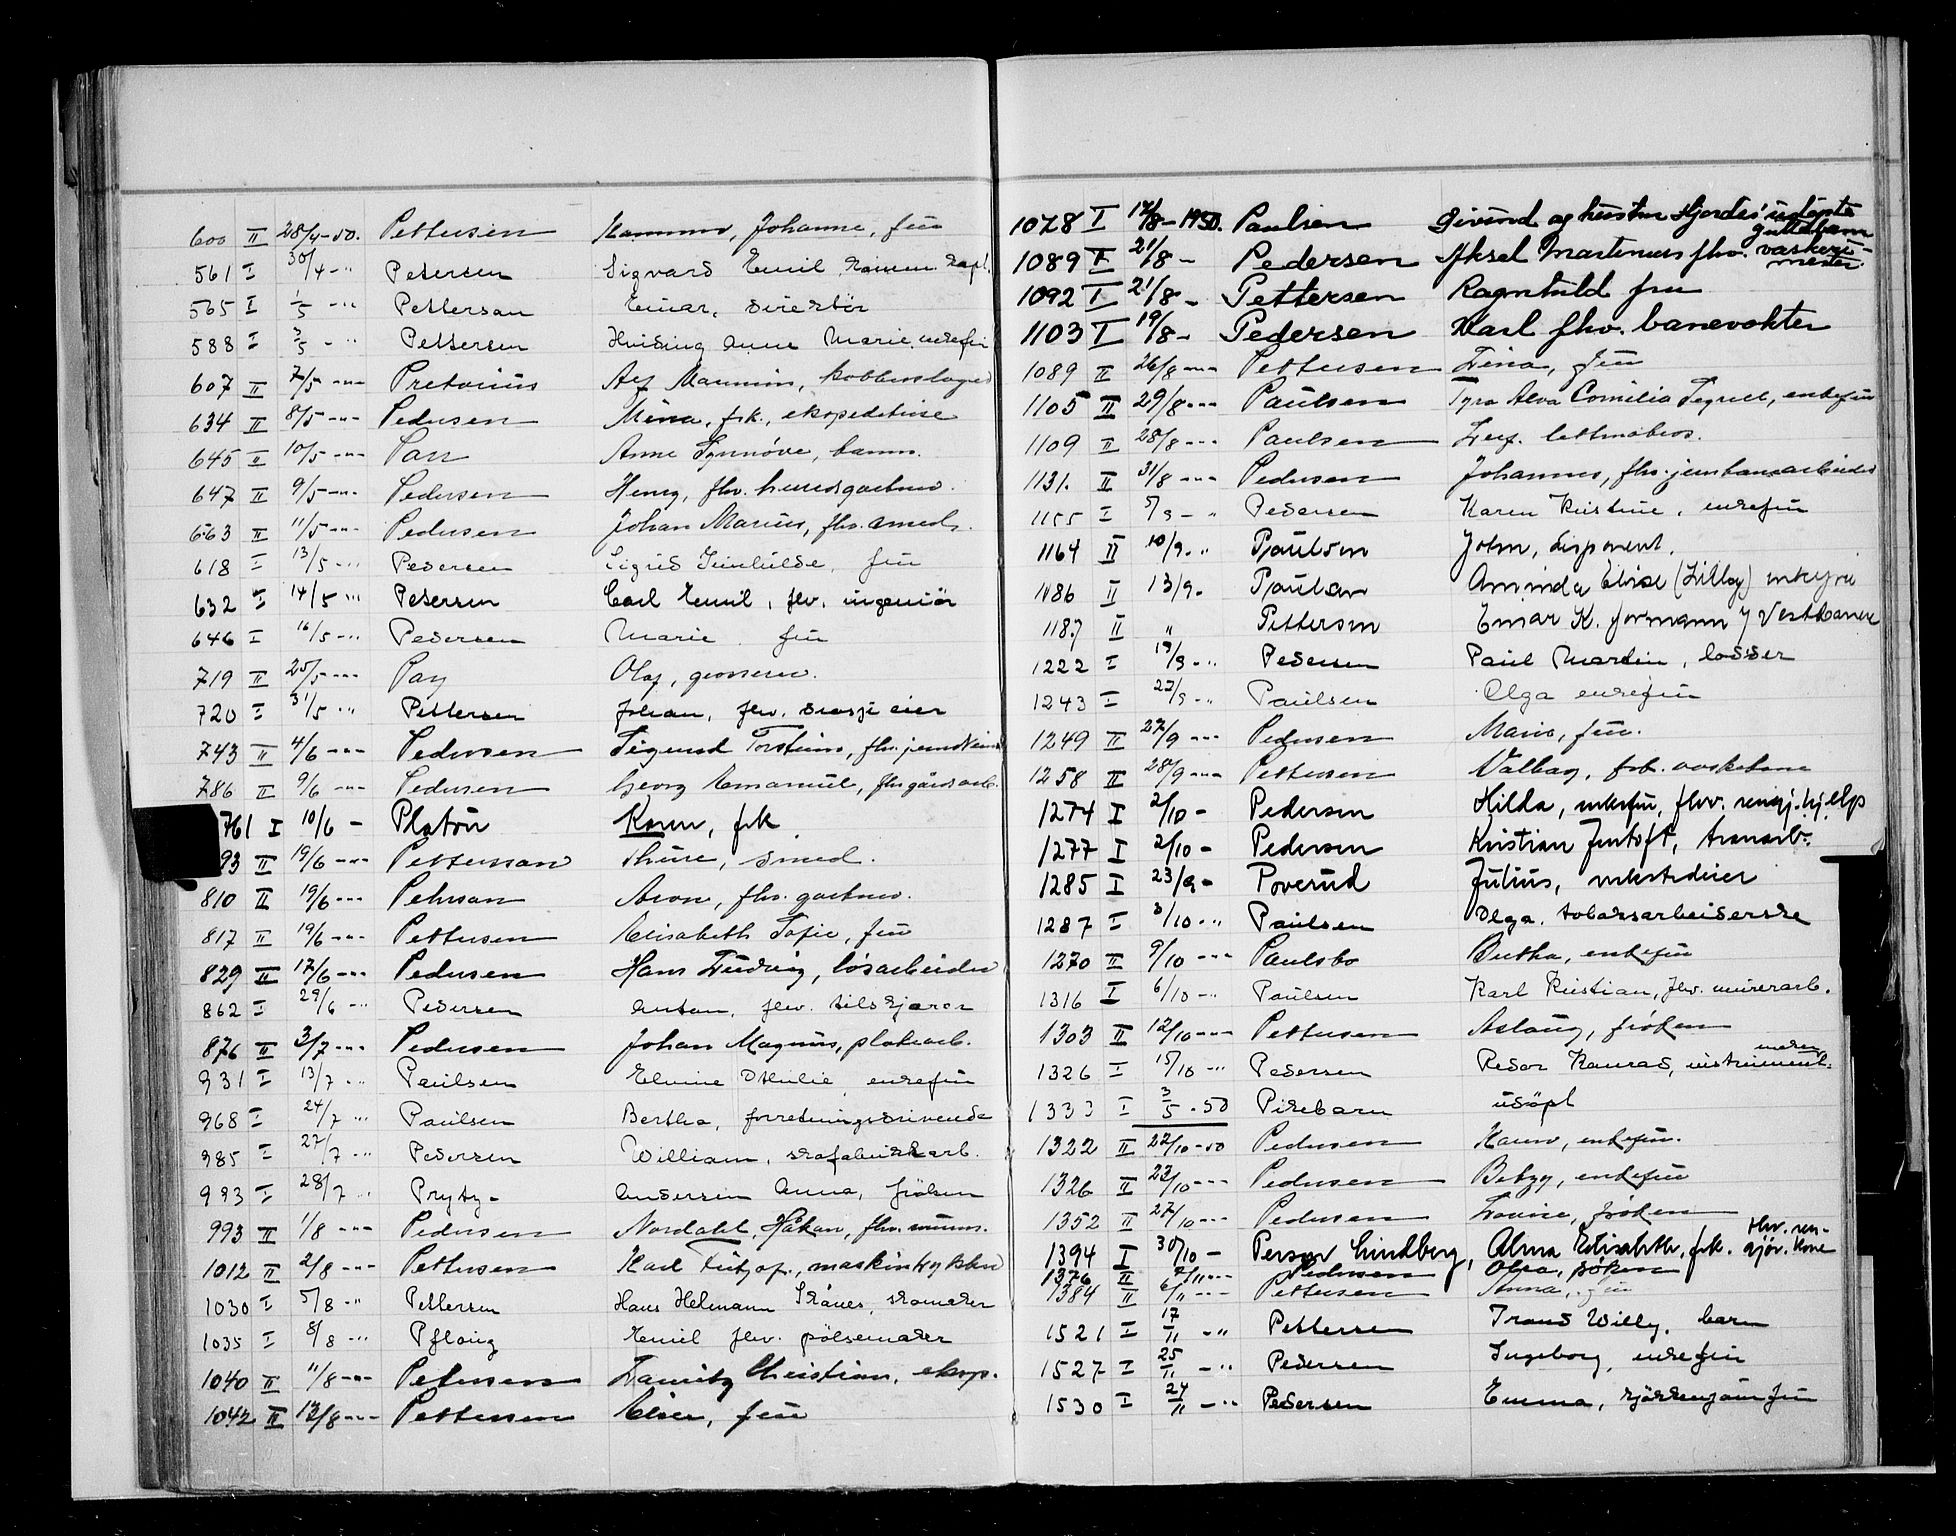 600 II 28/4-50. Pettersen Johanne, fru
561 I 30/4 - " Petersen Sigvard Emil Kapt.
565 I 1/5 - " Petterson Einar, direktör
588 I 3/5 - " Pettersen Anna Marie, enkefru
607 II 7/5 - " - Pretorius kobberslager
634 II 8/5 - " - Pedersen frk., ekspeditrise
645 II 10/5 - " - Anne Synnöve, barn.
647 II 9/5 - " - Pedersen Henry, fhv.
663 II 11/5 - " - Pedersen Johan Marius, fhv. smed.
618 I 13/5 - " Pedersen Sigrid fru
632 I 14/5 - " Petersen Carl Emil, fhv. ingeniör
646 I 16/5 - " Pedersen Marie fru
719 II 25/5 - " - Olaf, grosserer.
720 I 31/5 - " Pettersen Johan, fhv. drosjeeier
743 II 4/6 - " - Pedersen Sigurd Torstein, fhv.
786 II 9/6 - " - Pedersen Georg Emanuel, fhv. gårdsarb.
761 I 10/6 - Platou Karen, frk
93 II 19/6 - " - Petterson Thure, smed.
810 II 19/6 - " - Pehrson Aron, fhv. gartner.
817 II 19/6 - " - Pettersen Elisabeth Sofie, fru
829 II 17/6 - " - Pedersen Hans Ludvig, lösarbeider
862 I 29/6 - " Pedersen Anton, fhv. tilskjærer
876 II 3/7 - " - Pedersen Johan Magnus, platearb.
931 I 13/7 - " Paulsen Othilie enkefru
968 I 24/7 - " Paulsen Bertha, forretningsdrivende
985 I 27/7 - " Pedersen William, skofabrikkarb.
993 I 28/7 - " Prytz - Andersen Anna, fröken
993 II 1/8 - " - Pedersen Nordahl, Håkon, fhv. murm.
1012 II 2/8 - " - Pettersen Karl Fritjof, maskintrykker
1030 I 5/8 - " Pettersen Hans Helmann skomaker
1035 I 8/8 - " Pflong Emil fhv. pölsemaker
1040 II 11/8 - " - Petersen Lauritz Christian, eksp.
1042 II 12/8 - " - Pettersen Elise, fru
1078 I 12/8 - 1950. Paulsen Eivind og hustru Hjordis' udöpte
guttebarn
1089 I 21/8 - Pedersen Aksel Martinius fhv. vaskeri-
mester.
1092 I 21/8 - Pettersen Ragnhild fru
1103 I 19/8 - Pedersen Karl fhv. banevokter
1089 II 26/8 - " - Pettersen Lina, fru
1105 II 29/8 - " - Paulsen Tyra Alva Cornilia enkefru
1109 II 28/8 - " - Paulsen Leif. lettmatros.
1131. II 31/8 - " - Pedersen Johannes, fhv. jernbanearbeider
1155 I 5/9 - " Pedersen Karen Kristine, enkefru
1164 II 10/9. " Paulsen John, disponent.
1186 II 13/9. Paulsen Aminda Elvise (Lilly) enkefru
1187 II " Pettersen Einar K. formann v/ Vestbanen
1222 I 19/9 - " Pedersen Paul Martin, losser
1243 I 22/9 - " Paulsen Olga enkefru
1249 II 27/9 - " - Pedersen Marie, fru.
1258 II 28/9 - " - Pettersen Valborg, frk. vaskekone
1274 I 2/10 - Pedersen Hilda, enkefru, fhv. rengj.hjelp
1277 I 2/10 - Pedersen Kristian Jentoft,
1285 I 23/9 - Poverud Julius,
1287 I 3/10 - " Paulsen Olga. tobaksarbeiderske
1270 II 9/10 - " - Paulsbo Bertha, enkefru
1316 I 6/10 - " Paulsen Karl Kristian, fhv. murerarb.
1303 II 12/10 - " - Pettersen Aslaug, fröken
1326 I 15/10 - " Pedersen Redar Konrad, instrument-
maker
1333 I 3/5 - 50 Pikebarn udöpt
1322 II 22/10-50 Pedersen Karen, enkefru.
1326 II 23/10 - " - Pedersen Betzy, enkefru
1352 II 27/10 - " - Pedersen Lovise, fröken
1394 I 30/10 - Person Lindberg, Alma Elisabeth, frk. fhv. ren-
gjör. kone
1376 II 7/11 - " - Pedersen Olga, fröken
1384 II 6/11 - " - Pettersen Anna, fru
1521 I 17/11 - " Pettersen Trond Willy. barn
1527 I 25/11 - " Pedersen Ingeborg, enkefru
1530 I 24/11 - " Pedersen Emma, kjökkenjomfru